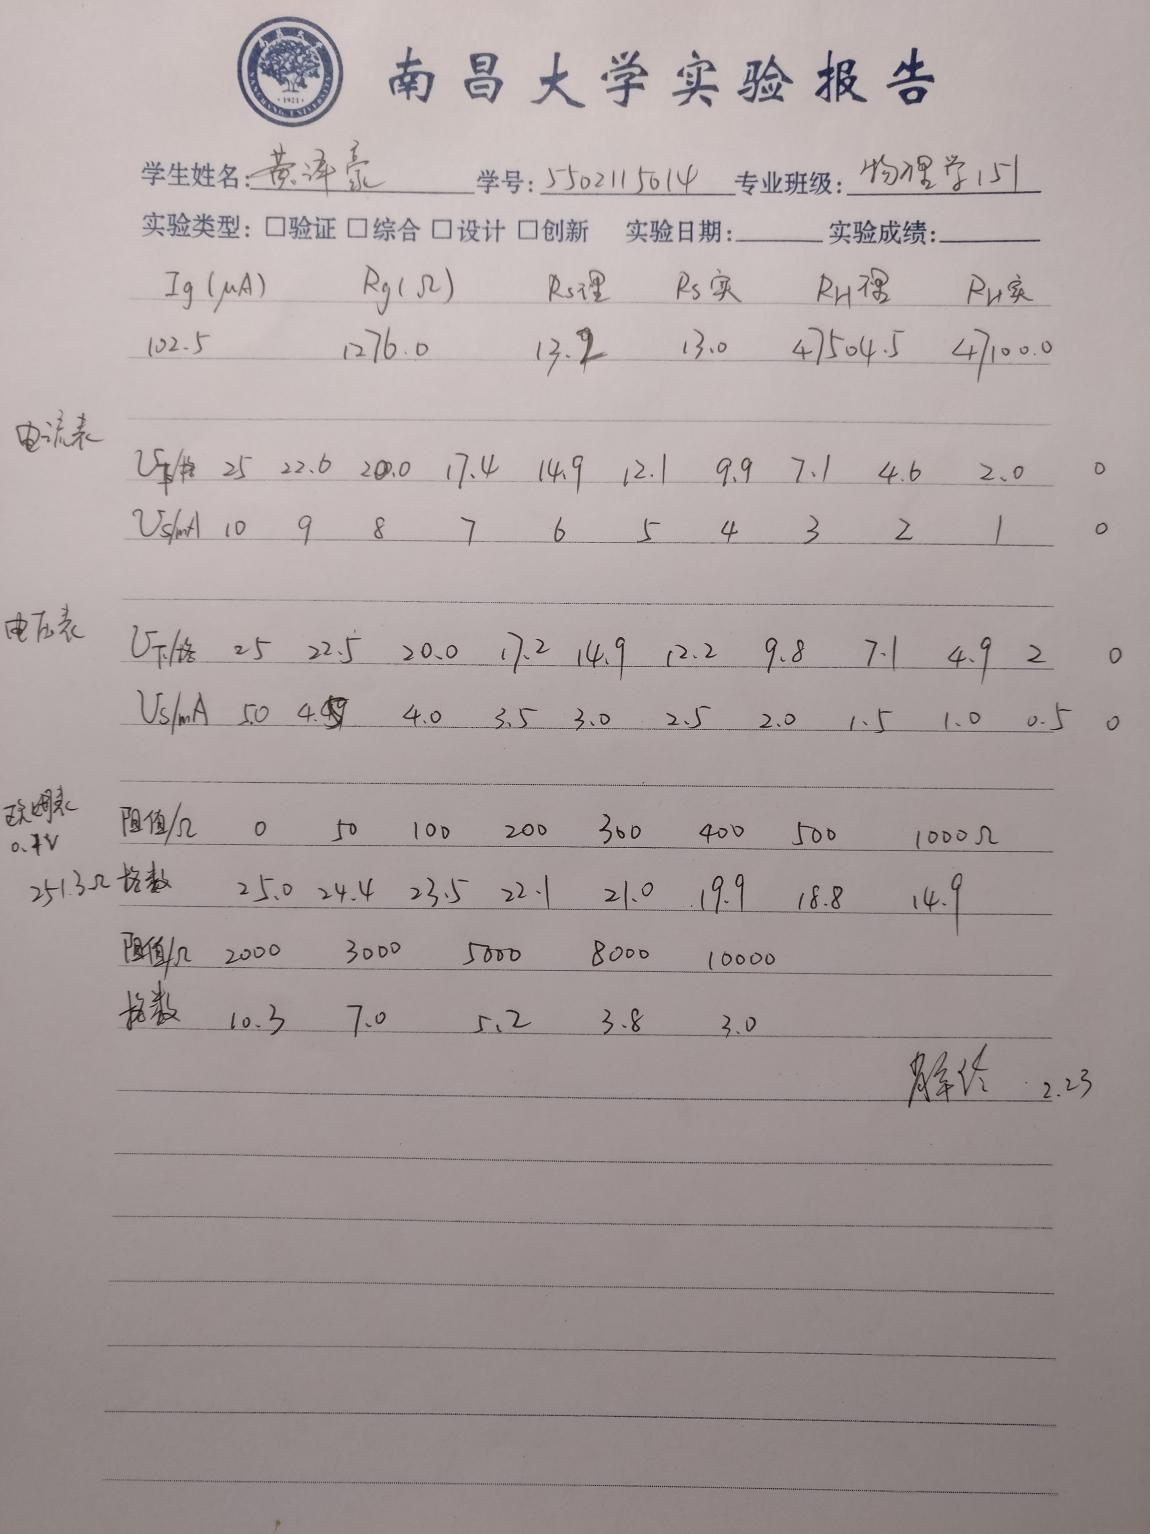 南昌大学实验报告
学生姓名: 黄泽豪 学号: 5502115014 专业班级: 物理学151
实验类型: □验证 □综合 □设计 □创新 实验日期: 实验成绩:
Ig(μA) Rg(Ω) Rs理 Rs实 RH理 RH实
102.5 1276.0 13.2 13.0 47504.5 47100.0
电流表
U下/格 25 22.6 20.0 17.4 14.9 12.1 9.9 7.1 4.6 2.0 0
Us/mA 10 9 8 7 6 5 4 3 2 1 0
电压表
U下/格 25 22.5 20.0 17.2 14.9 12.2 9.8 7.1 4.9 2 0
Us/mA 5.0 4.5 4.0 3.5 3.0 2.5 2.0 1.5 1.0 0.5 0
欧姆表 阻值/Ω 0 50 100 200 300 400 500 1000Ω
251.3Ω 格数 25.0 24.4 23.5 22.1 21.0 19.9 18.8 14.9
阻值/Ω 2000 3000 5000 8000 10000
格数 10.3 7.0 5.2 3.8 3.0
2.23